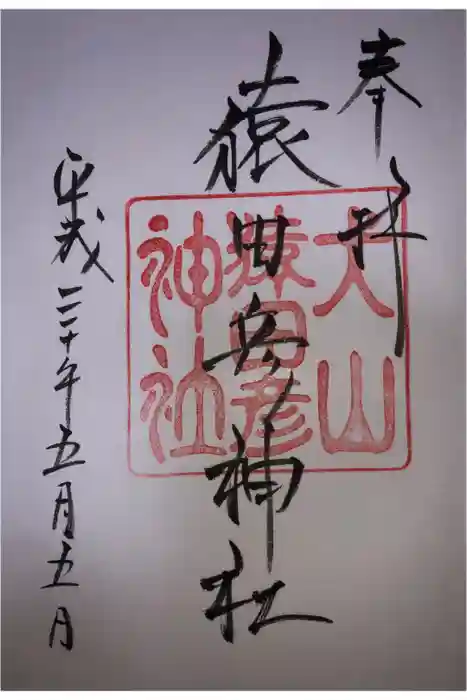 奉拝
大山
猿田彦神社
猿田彦
神社
平成三十年五月五日